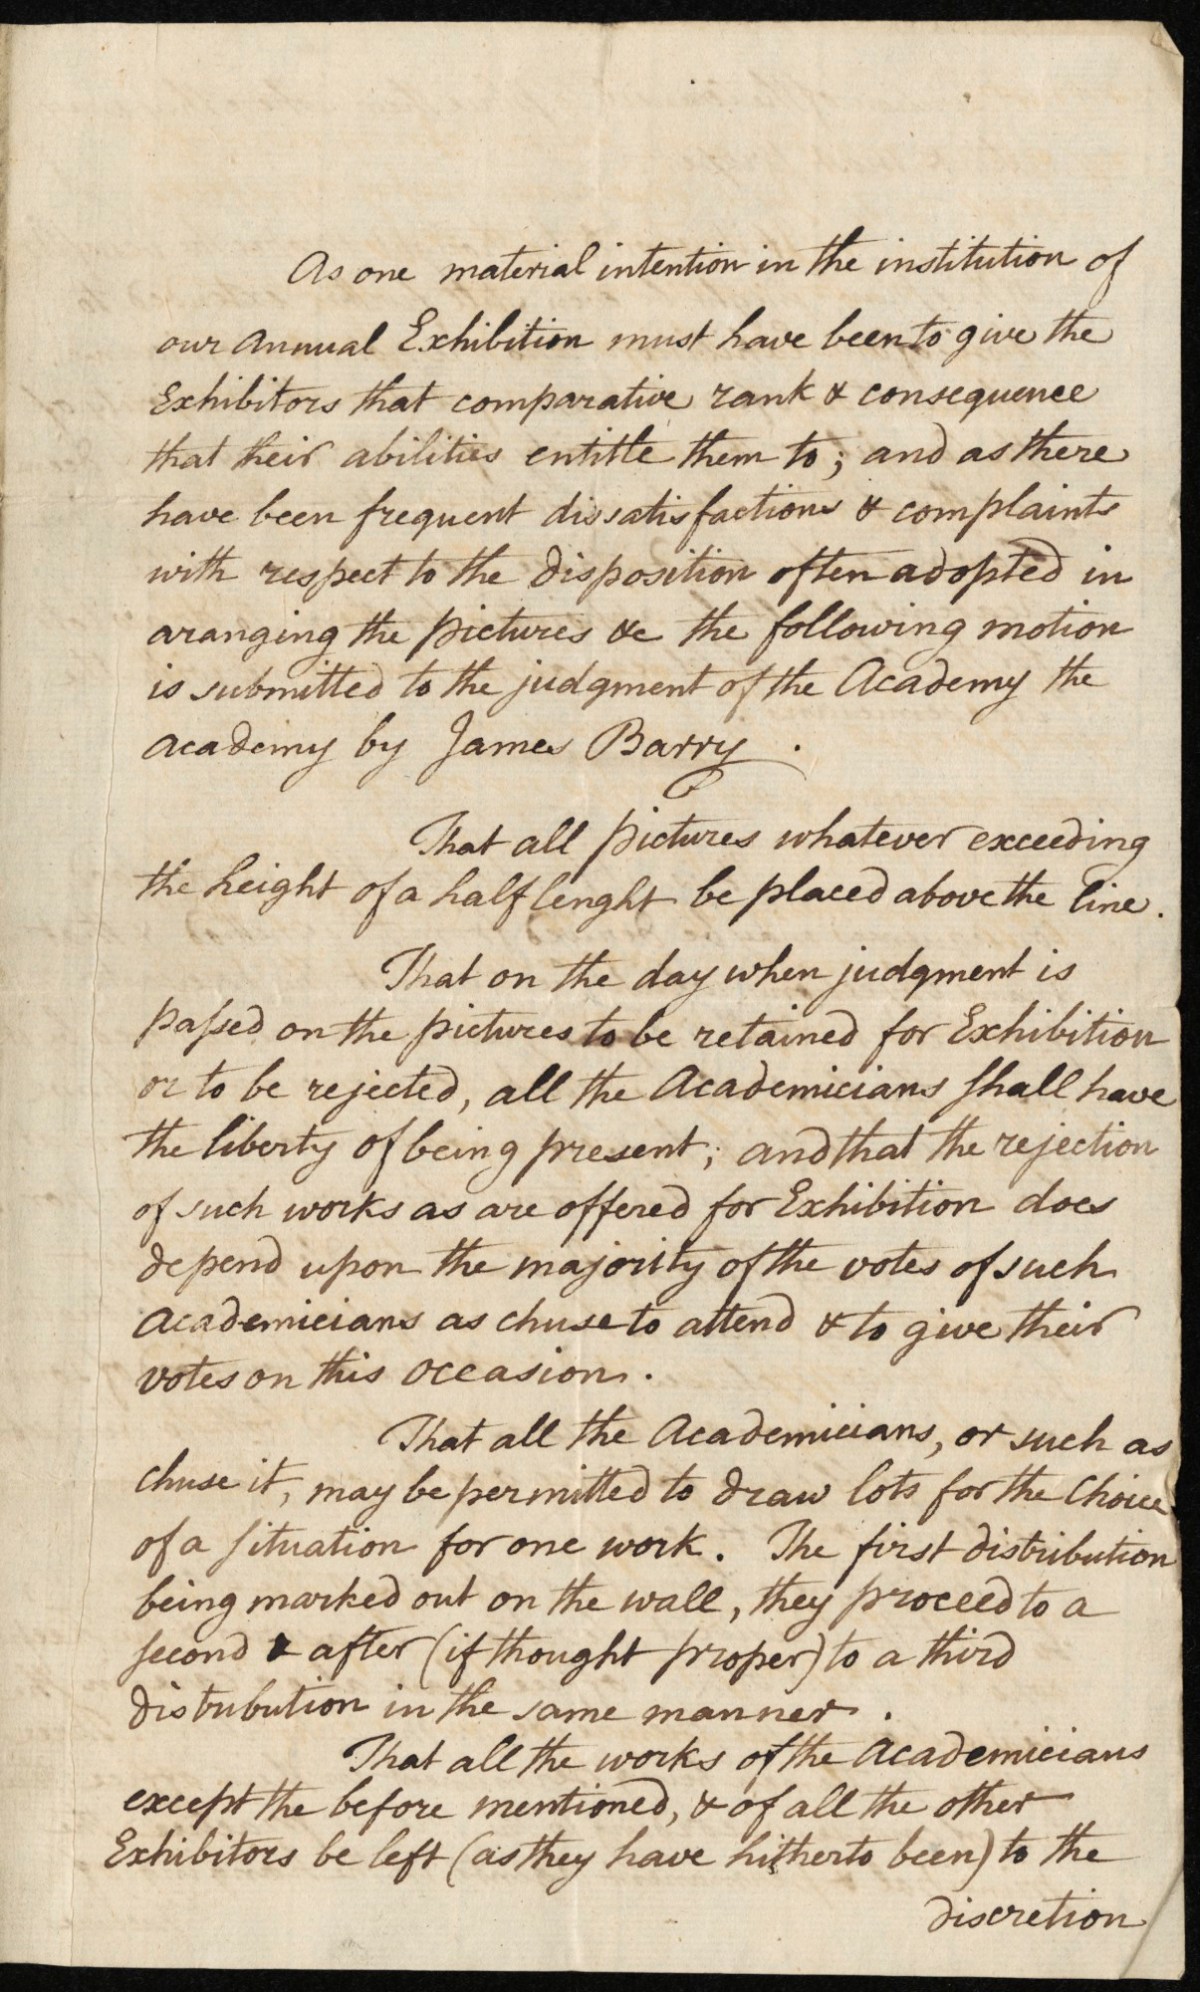 As one material intention in the institution of
our Annual Exhibition must have been to give the
Exhibitors that comparative rank & consequence
that their abilities entitle them to; and as there
have been frequent dissatisfactions & complaints
with respect to the disposition often adopted in
aranging the pictures &c the following motion
is submitted to the judgment of the Academy the
academy by James Barry.
That all pictures whatever exceeding
the height of a half lenght be placed above the line.
That on the day when judgment is
paſsed on the pictures to be retained for Exhibition
or to be rejected, all the Academicians shall have
the liberty of being present; and that the rejection
of such works as are offered for Exhibition does
depend upon the majority of the votes of such
Academicians as chuse to attend & to give their
votes on this occasion.
That all the Academicians, or such as
chuse it, may be permitted to draw lots for the Choice
of a situation for one work. The first distribution
being marked out on the wall, they proceed to a
second & after (if thought proper) to a third
distribution in the same manner.
That all the works of the Academicians
except the before mentioned, & of all the other
Exhibitors be left (as they have hitherto been) to the
discretion